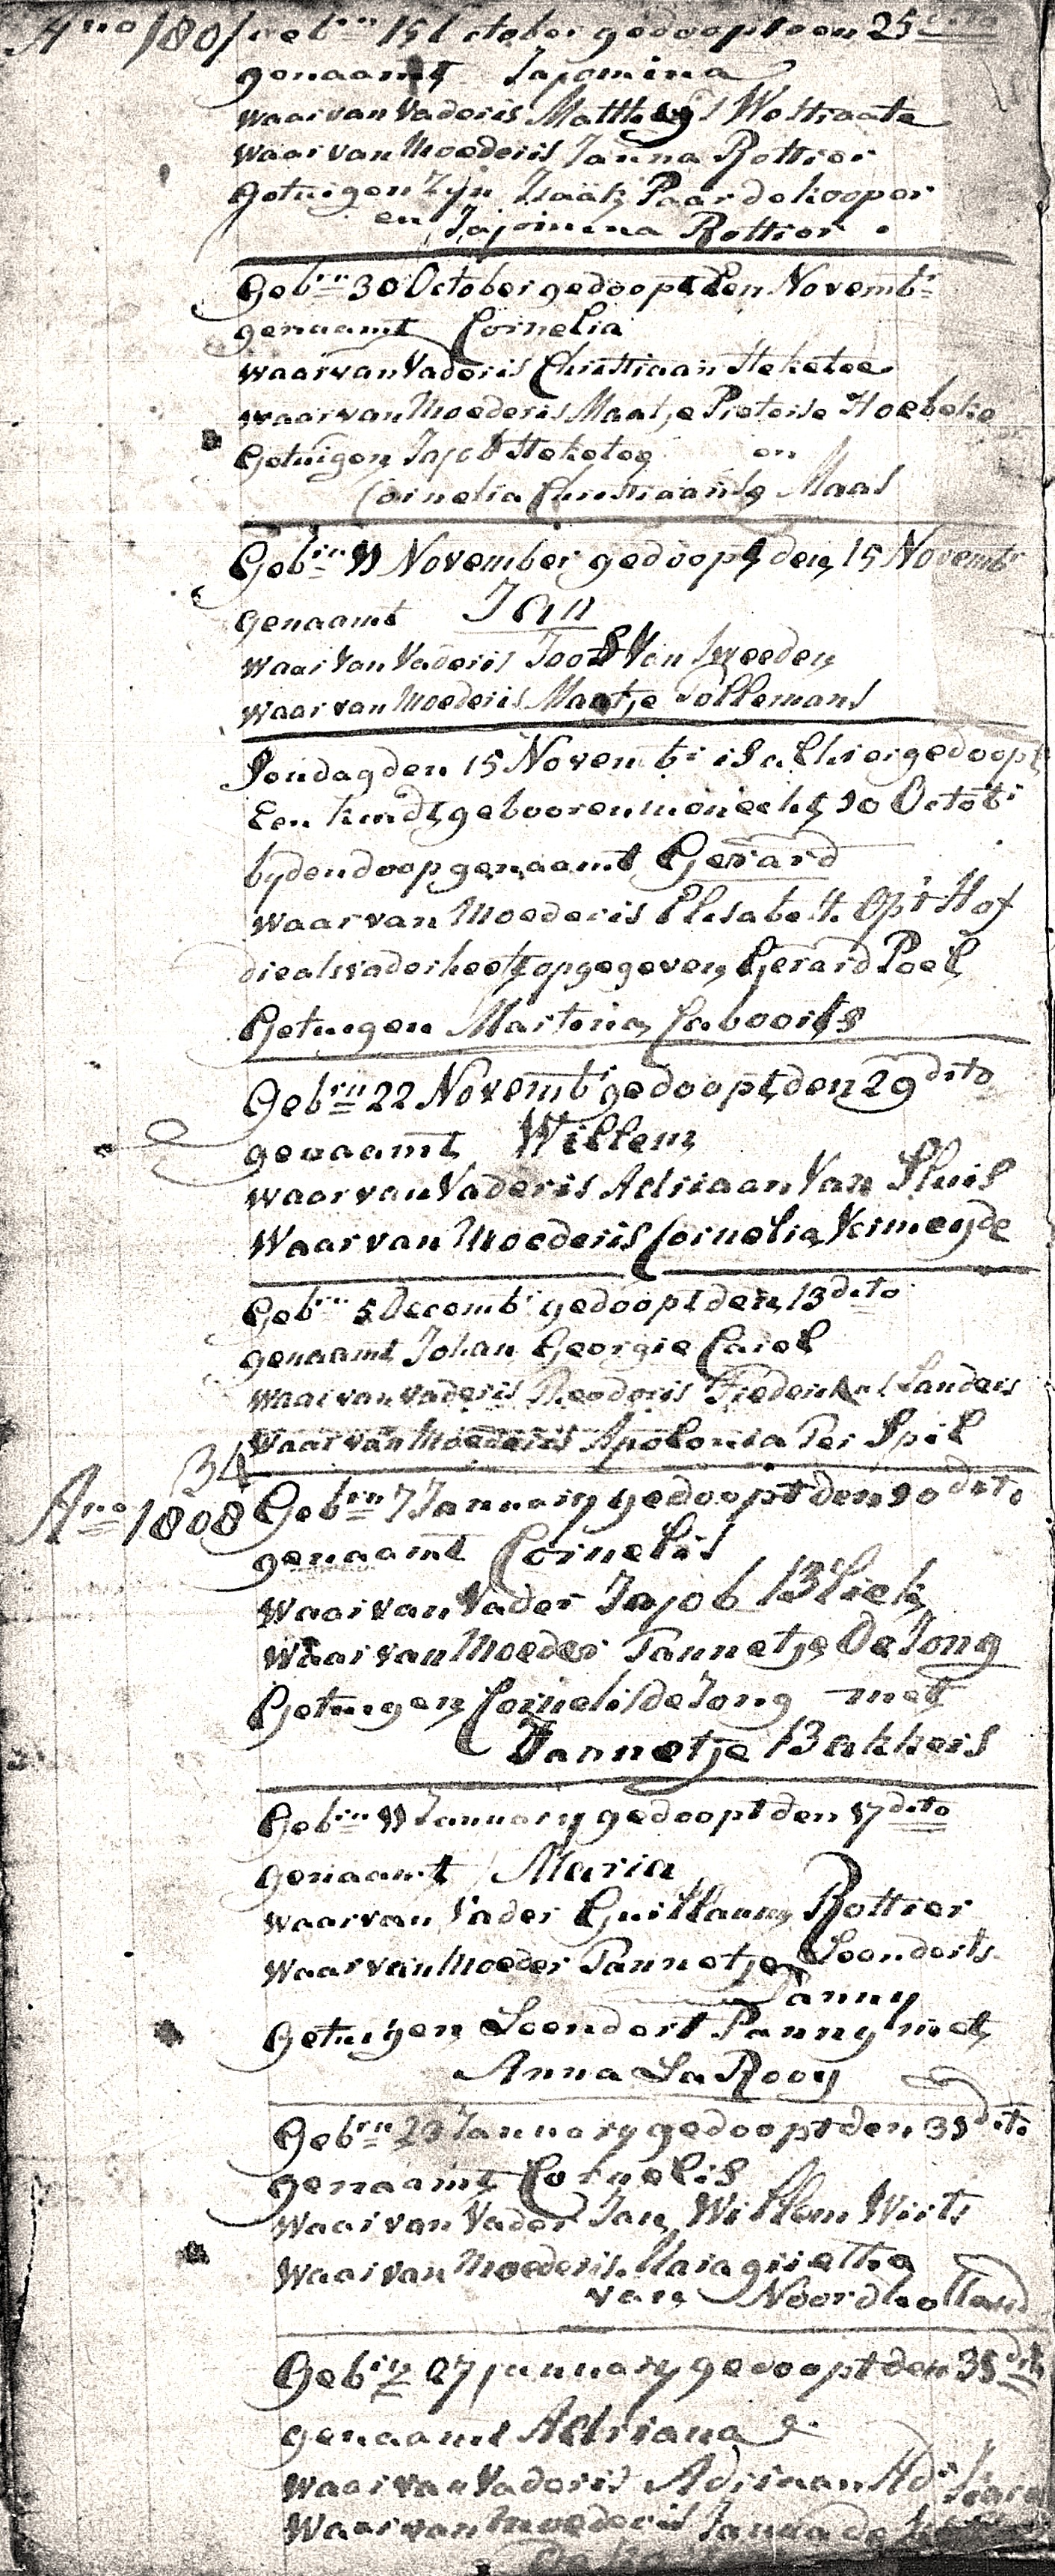 Ano 1807 Gebrn 15 October gedoopt den 25 dito
genaamt Jacomina
waar van Vader is Matthys Westraate
waar van Moeder is Janna Rottier
Getuigen Zijn Izaak Paardekooper
en Jacomina Rottier
Gebrn 30 October gedoopt den Novembr
genaamt Cornelia
waar van Vader is Christiaan Steketee
waar van Moeder is Maatje Pieterse Hoebeke
Getuigen Jacob Steketee en
Cornelia Christiaanse Maas
Gebrn 11 November gedoopt den 15 Novembr
genaamt Jan
waar van Vader is Joos Van Sweeden
waar van Moeder is Maatje Pollemans
Sondag den 15 Novembr is alhier gedoopt
Een kindt gebooren in onecht 10 Octobr
by den doop genaamt Gerard
waar van Moeder is Elisabeth Op't Hof
die als vader heeft opgegeven Gerard Poel
Getuigen Martina Caboorts
Gebrn 22 Novembr gedoopt den 29 dito
genaamt Willem
waar van Vader is Adriaan Van Sluis
Waar van Moeder is Cornelia Vermeyde
Gebrn 5 Decembr gedoopt den 13 dito
genaamt Johan Georgie Carel
waar van vader is Theodoris Frederik Landers
Waar van Moeder is Apolonia Ter Spil
34
Ano 1808 Gebrn 7 January gedoopt den 10 dito
genaamt Cornelis
waar van Vader Jacob Bliek
waar van Moeder Tannetje De Jong
Getuigen Cornelis de Jong met
Jannetje Bakkers
Gebrn 11 January gedoopt den 17 dito
genaamt Maria
waar van Vader Guillaum Rottier
waar van Moeder Pannetje Leenderts
Panny
Getuigen Leendert Panny met
Anna La Rooy
Gebrn 23 January gedoopt den 31 dito
genaamt Cornelis
waar van Vader Jan Willem Wirts
waar van Moeder is Maragrietha
van Noordholland
Gebrn 27 january gedoopt den 31 dito
genaamt Adriana
waar van Vader is Adriaan Adr
Waar van Moeder is Janna de